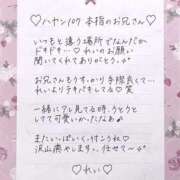 ♡ハヤン107 本指のお兄さん♡
いつもと違う場所でなんだか
ドキドキ… ♡れいのお願い
聞いてくれてありがとっ♪
お兄さんもうすっかり手際良くて…
れいよりテキパキしてる♡笑
一緒にアレ見てる時、うとうと
しててかわいかったなぁ
またいっぱいくっ付こうね♡
沢山癒やしますっ、任せて〜♡
♡れい♡